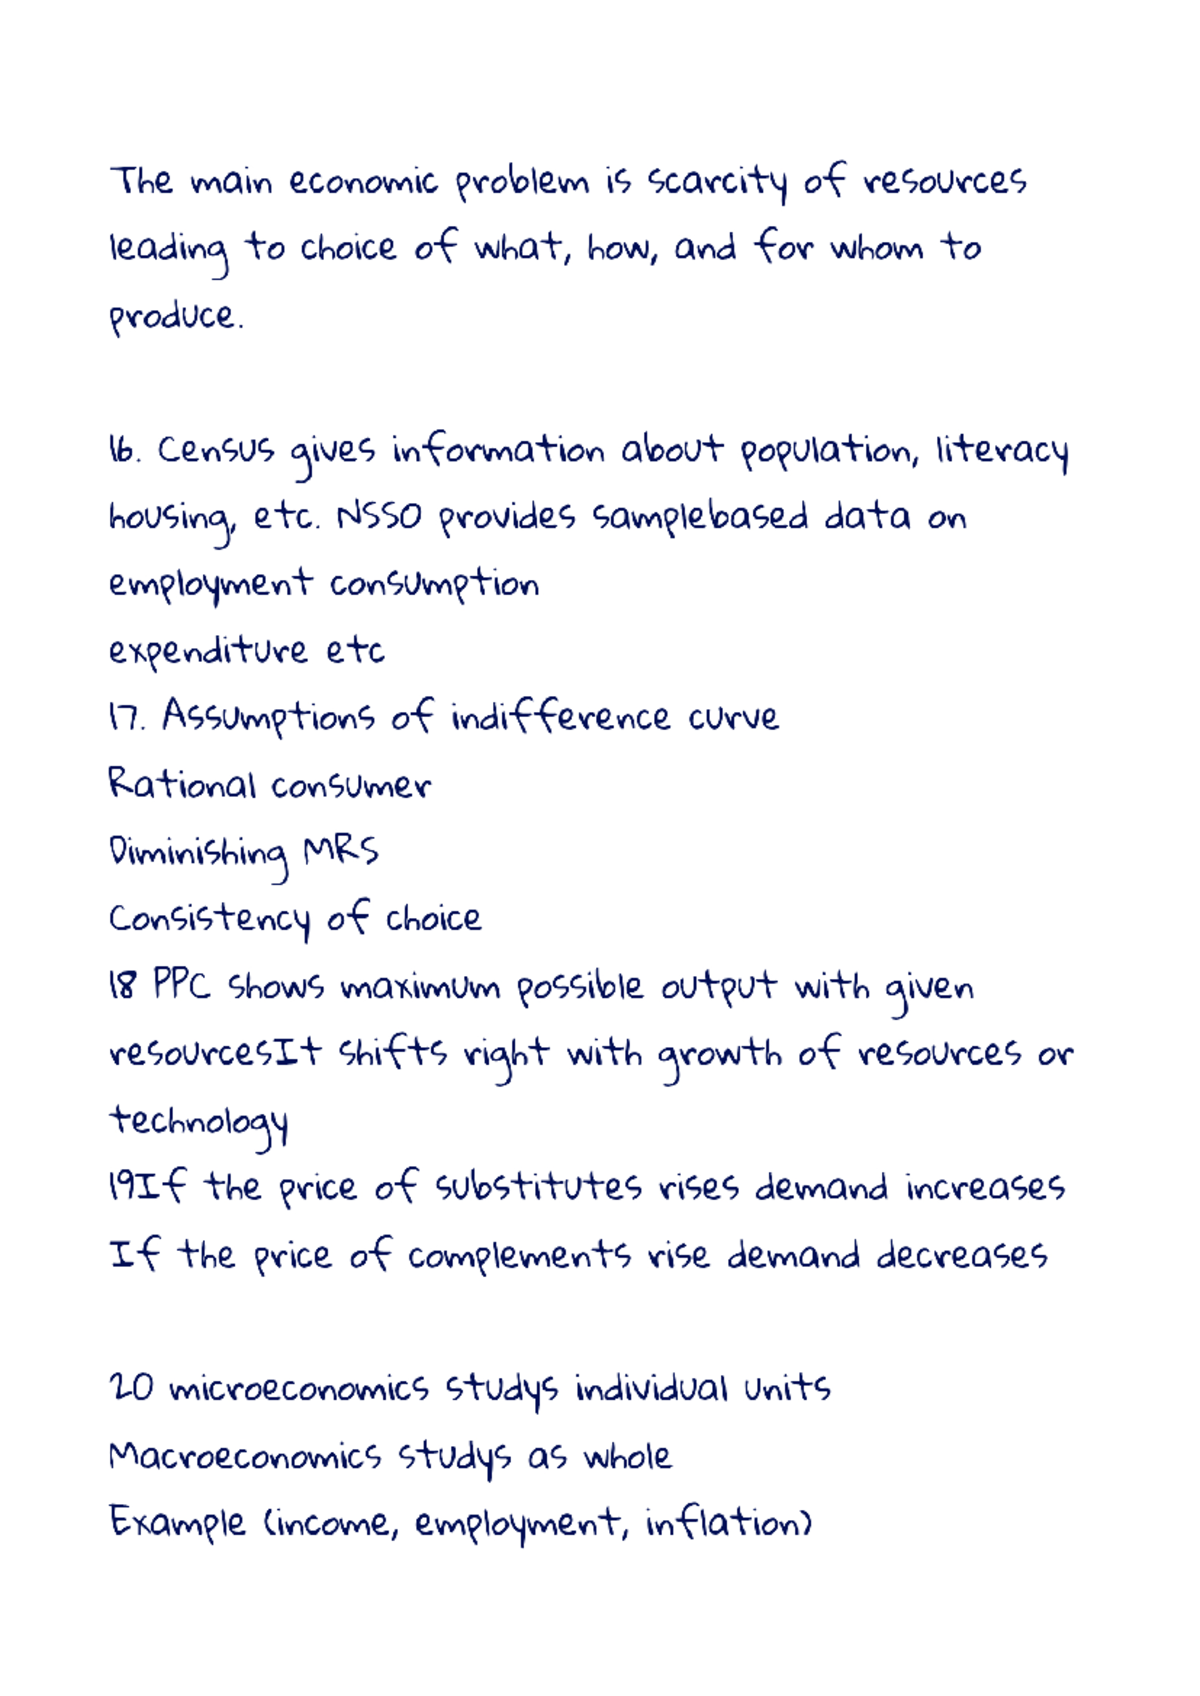 The main economic problem is scarcity of resources
leading to choice of what, how, and for whom to
produce.
16. Census gives information about population, literacy
housing, etc. NSSO provides samplebased data on
employment consumption
expenditure etc
17. Assumptions of indifference curve
Rational consumer
Diminishing MRS
Consistency of choice
18 PPC shows maximum possible output with given
resourcesIt shifts right with growth of resources or
technology
19If the price of substitutes rises demand increases
If the price of complements rise demand decreases
20 microeconomics studys individual units
Macroeconomics studys as whole
Example (income, employment, inflation)